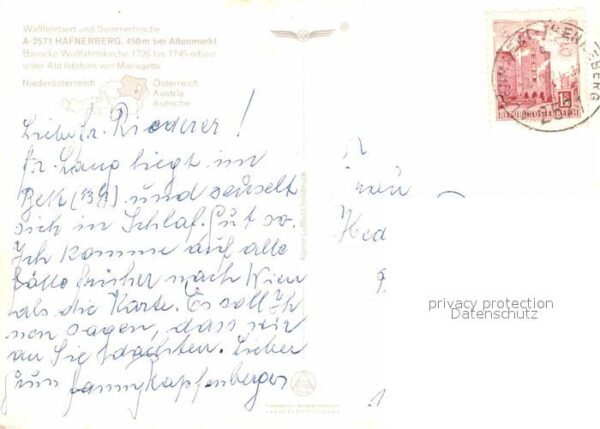 Wallfahrtsort und Sommerfrische
A-2571 HAFNERBERG, 450m bei Altenmarkt
Barocke Wallfahrtskirche 1726 bis 1745 erbaut
unter Abt Ildefons von Managetta
Niederösterreich
Österreich
Austria
Autriche
Liebe Fr. Riederer!
Fr. Lang liegt im
Bett (13h) und
sich in Schlaf. Gut so.
Ich komme auf alle
Fälle früher nach Wien
als die Karte. Es soll Ih
nen sagen, dass wir
an Sie dachten. Lieber
Fanny Kapfenberger
Alpine Luftbild Innsbruck
REPUBLIK ÖSTERREICH
Frau
Hed
privacy protection
Datenschutz
1